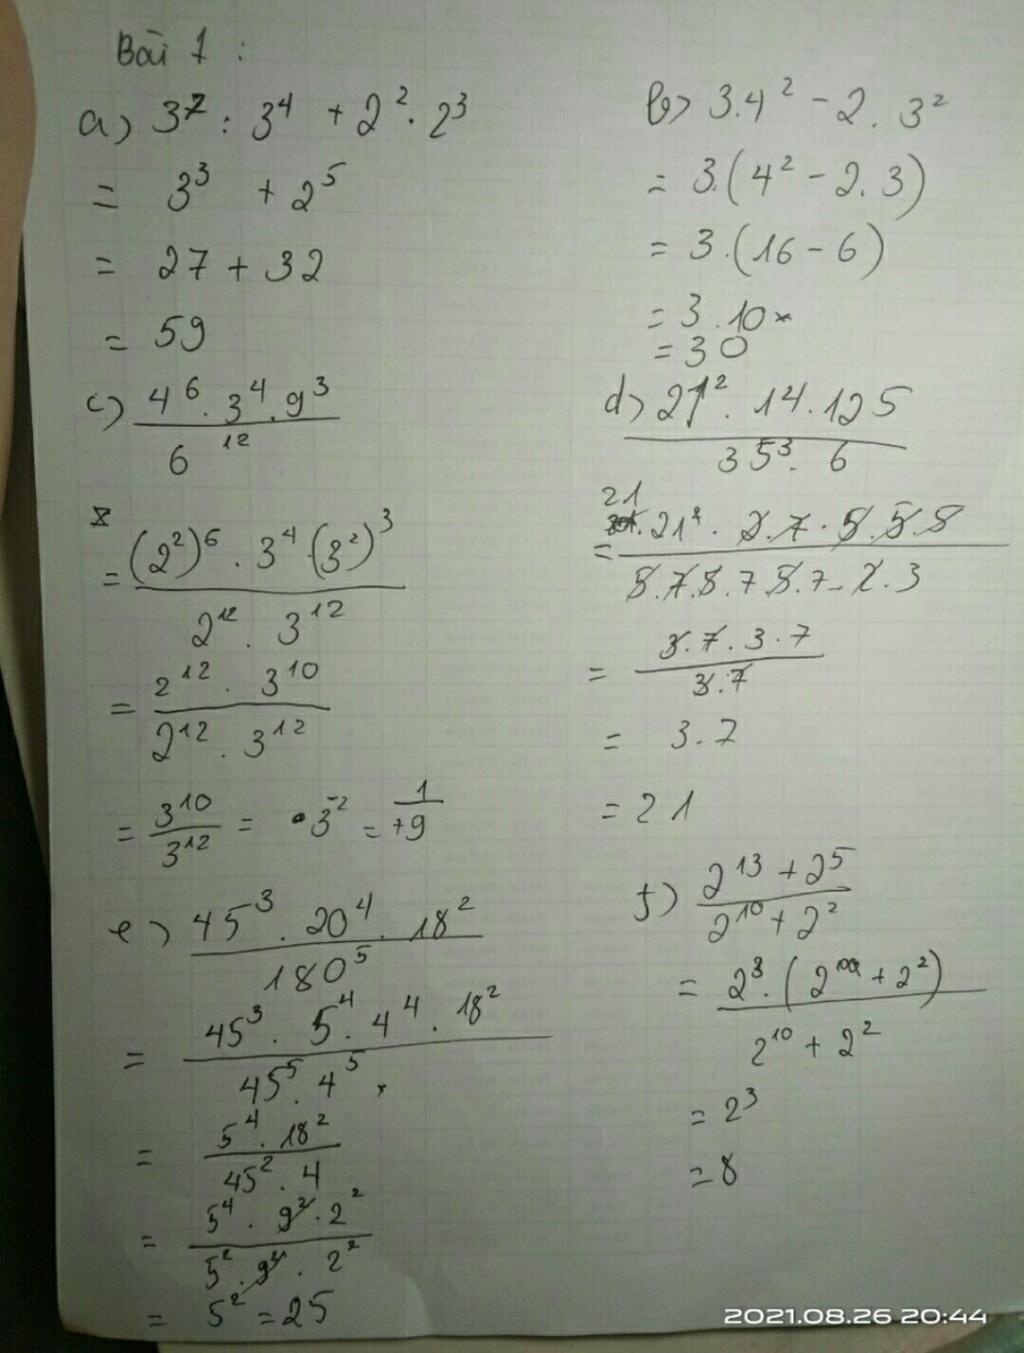 Bài 1 :
a) 3^7 : 3^4 + 2^2 . 2^3
= 3^3 + 2^5
= 27 + 32
= 59
b) 3.4^2 - 2 . 3^2
= 3.(4^2 - 2.3)
= 3.(16 - 6)
= 3.10
= 30
c) (4^6 . 3^4 . 9^3) / 6^12
= ((2^2)^6 . 3^4 . (3^2)^3) / (2^12 . 3^12)
= (2^12 . 3^10) / (2^12 . 3^12)
= 3^10 / 3^12 = 3^-2 = 1 / +9
d) (21^2 . 14 . 125) / (35^3 . 6)
= (21 . 21 . 2.7 . 5.5.5) / (5.7.5.7.5.7 . 2.3)
= (3.7.3.7) / (3.7)
= 3.7
= 21
e) (45^3 . 20^4 . 18^2) / 180^5
= (45^3 . 5^4 . 4^4 . 18^2) / (45^5 . 4^5)
= (5^4 . 18^2) / (45^2 . 4)
= (5^4 . 9^2 . 2^2) / (5^2 . 9^2 . 2^2)
= 5^2 = 25
f) (2^13 + 2^5) / (2^10 + 2^2)
= (2^3 . (2^10 + 2^2)) / (2^10 + 2^2)
= 2^3
= 8
2021.08.26 20:44